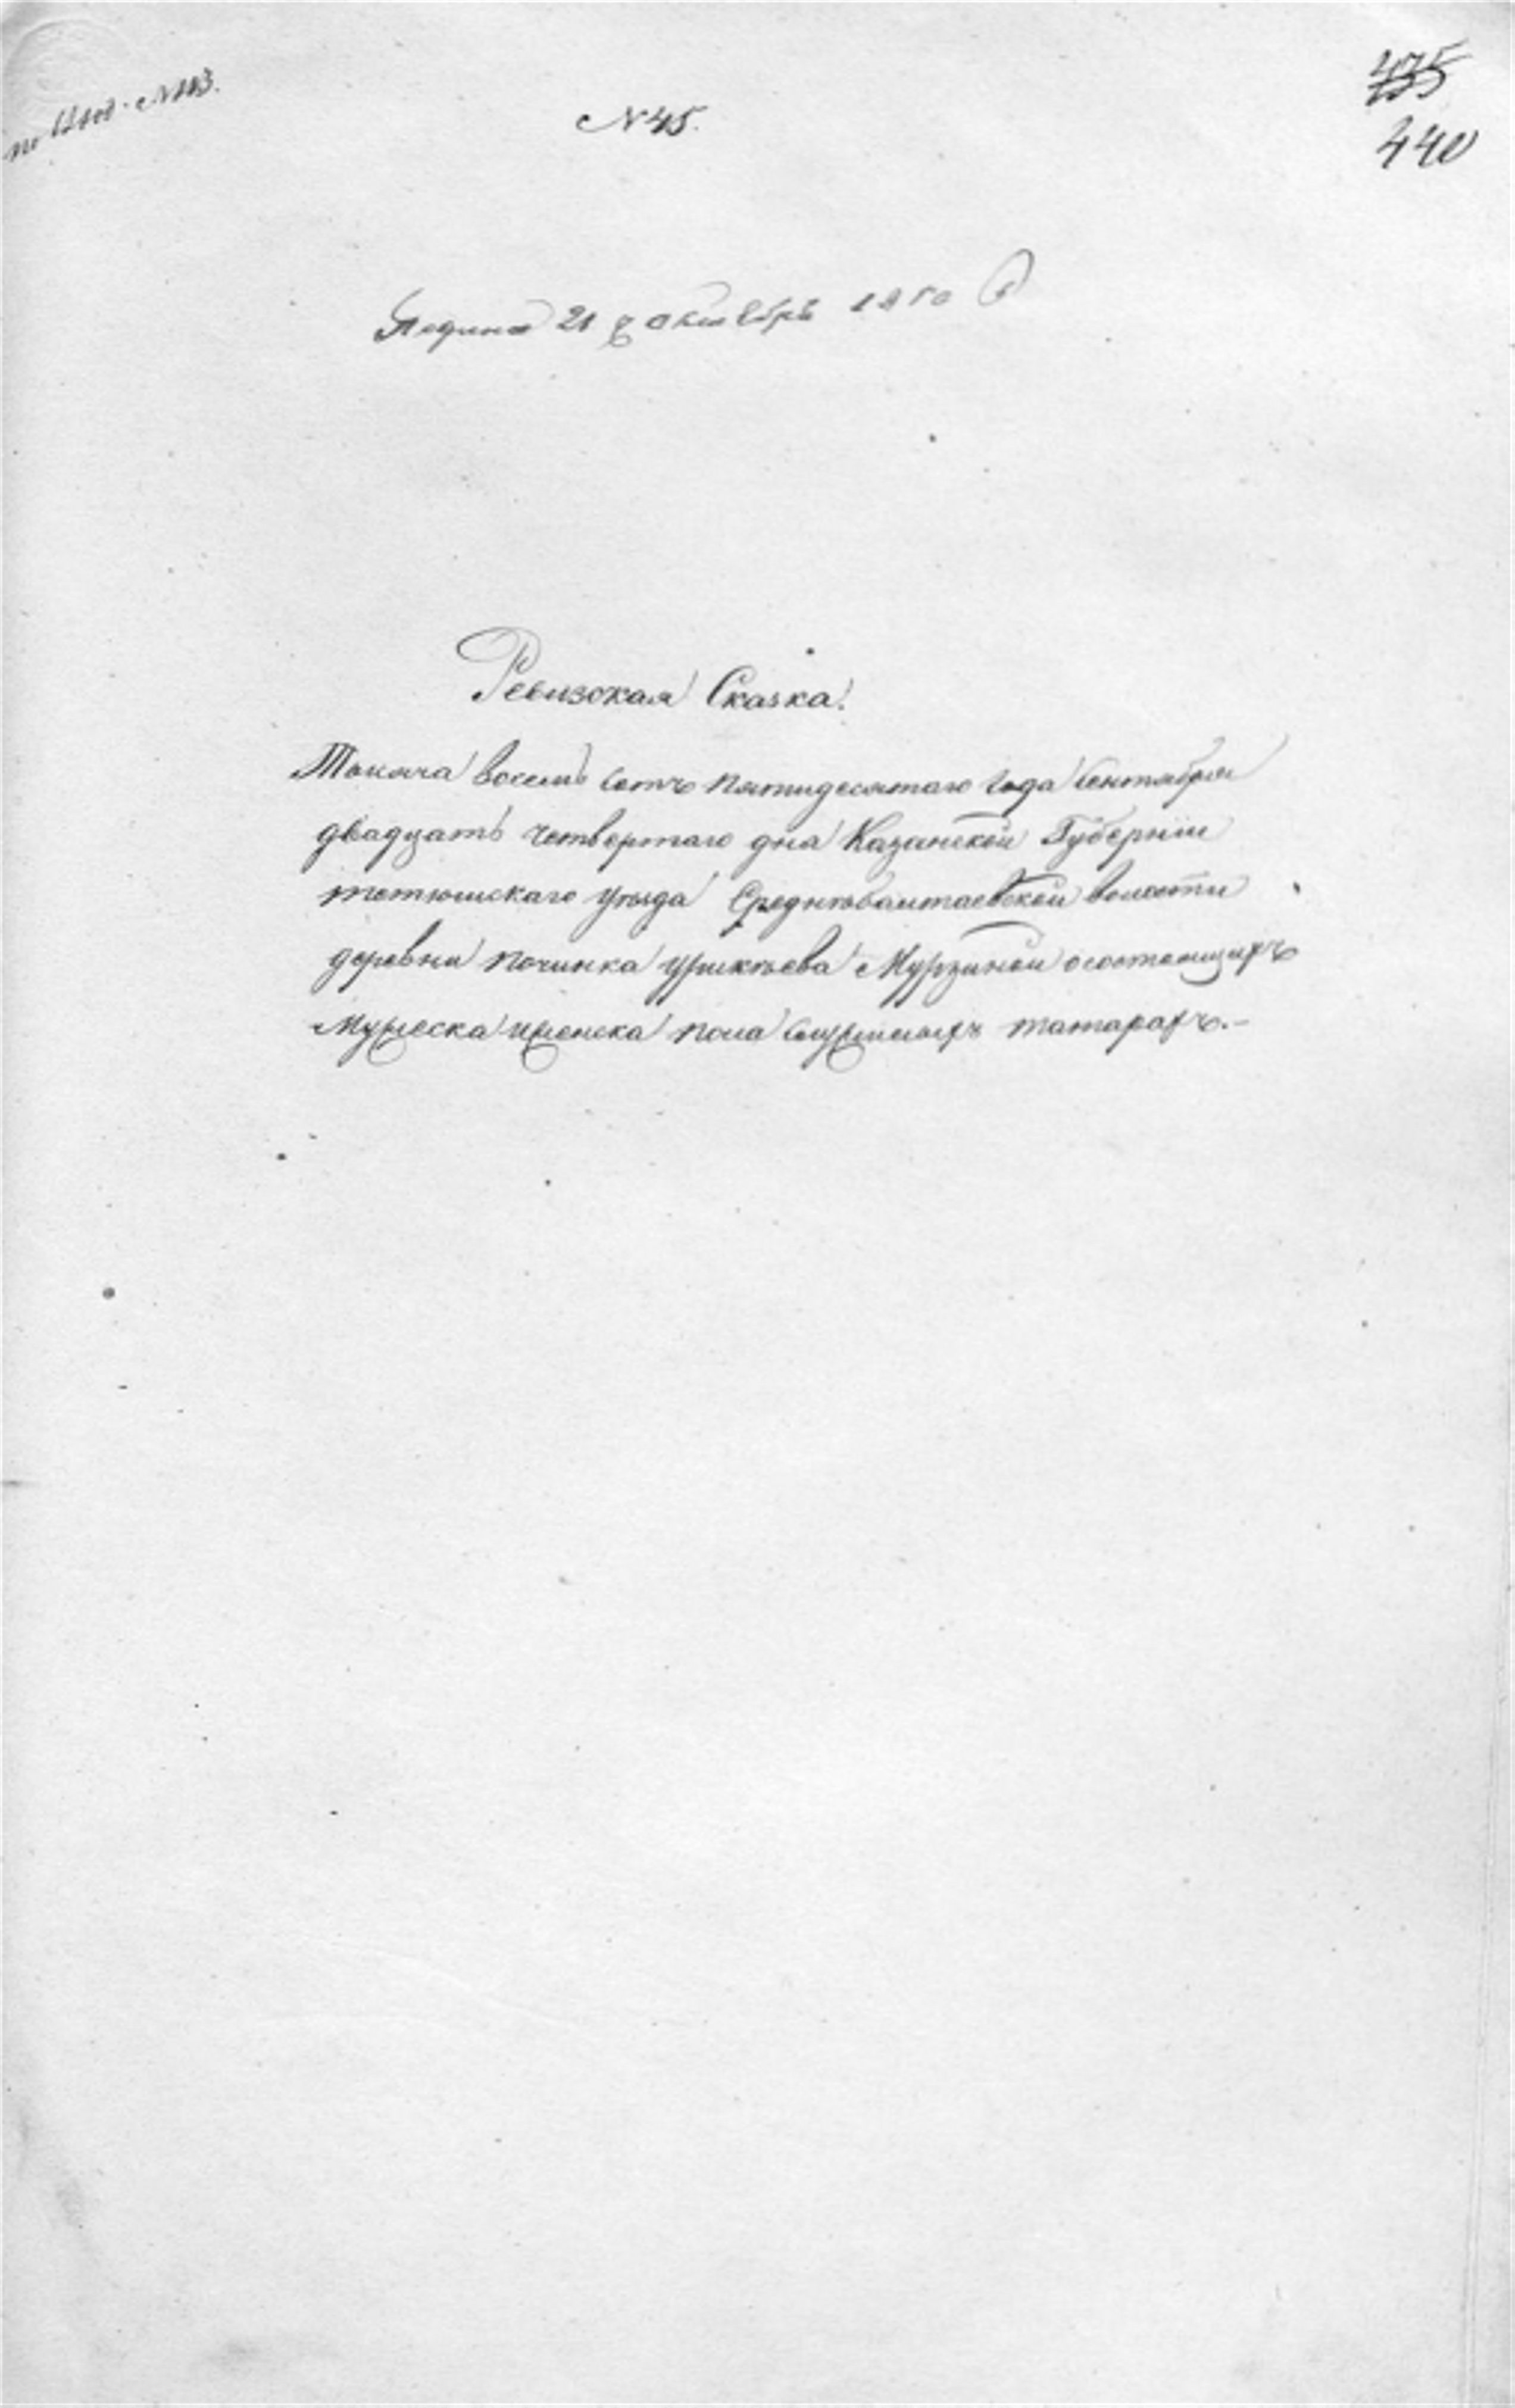 № 113.
№ 45.
435
440
Подана 21 Октября 1850
Ревизская Сказка.
Тысяча восемь сотъ пятидесятаго года Сентября
двадцать четвертаго дня Казанской Губерніи
тетюшскаго уѣзда Среднѣбалтаевской волости
деревни починка урмкѣева Мурзиной о состоящихъ
Мужеска и женска пола служилыхъ татарахъ.-